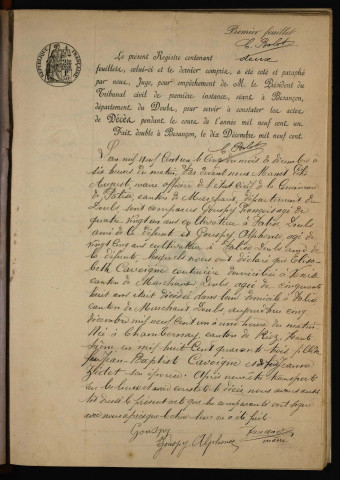 Premier feuillet
C. Perlet
deux
Le présent Registre contenant
feuillets, celui-ci et le dernier compris, a été coté et paraphé
par nous, Juge, pour empêchement de M. le Président du
Tribunal civil de première instance, séant à Besançon,
département du Doubs, pour servir à constater les actes
de Décès pendant le cours de l'année mil neuf cent un.
Fait double à Besançon, le dix Décembre mil neuf cent.
L'an neuf Cent un le Cinq du mois de décembre à
six heures du matin, Par devant nous
August, maire officier de l'état civil de la Commune
de canton de Marchaux, département du
Doubs sont comparus Gouspy François agé de
quatre vingt un ans cultivateur à Doubs
ami de la défunte et Gouspy Alphonse agé de
vingt cinq ans cultivateur à Doubs ami de
la défunte lesquels nous ont déclaré que Elisa-
beth Caveigne domiciliée à
canton de Marchaux Doubs agée de cinquante
huit ans était décédée dans son domicile à
canton de Marchaux Doubs aujourd'hui cinq
décembre mil neuf Cent un à une heure du matin
Née à canton de Haute
Saône en mil huit Cent quarante trois fille de
feu Jean Baptiste Caveigne et de feu Jeanne
son épouse. Après nous être transporté
au domicile et avoir constaté le décès, nous avons aussi-
tôt dressé le présent acte que les comparants ont signé
avec nous après que lecture leur en a été faite
Gouspy
Gouspy Alphonse
maire